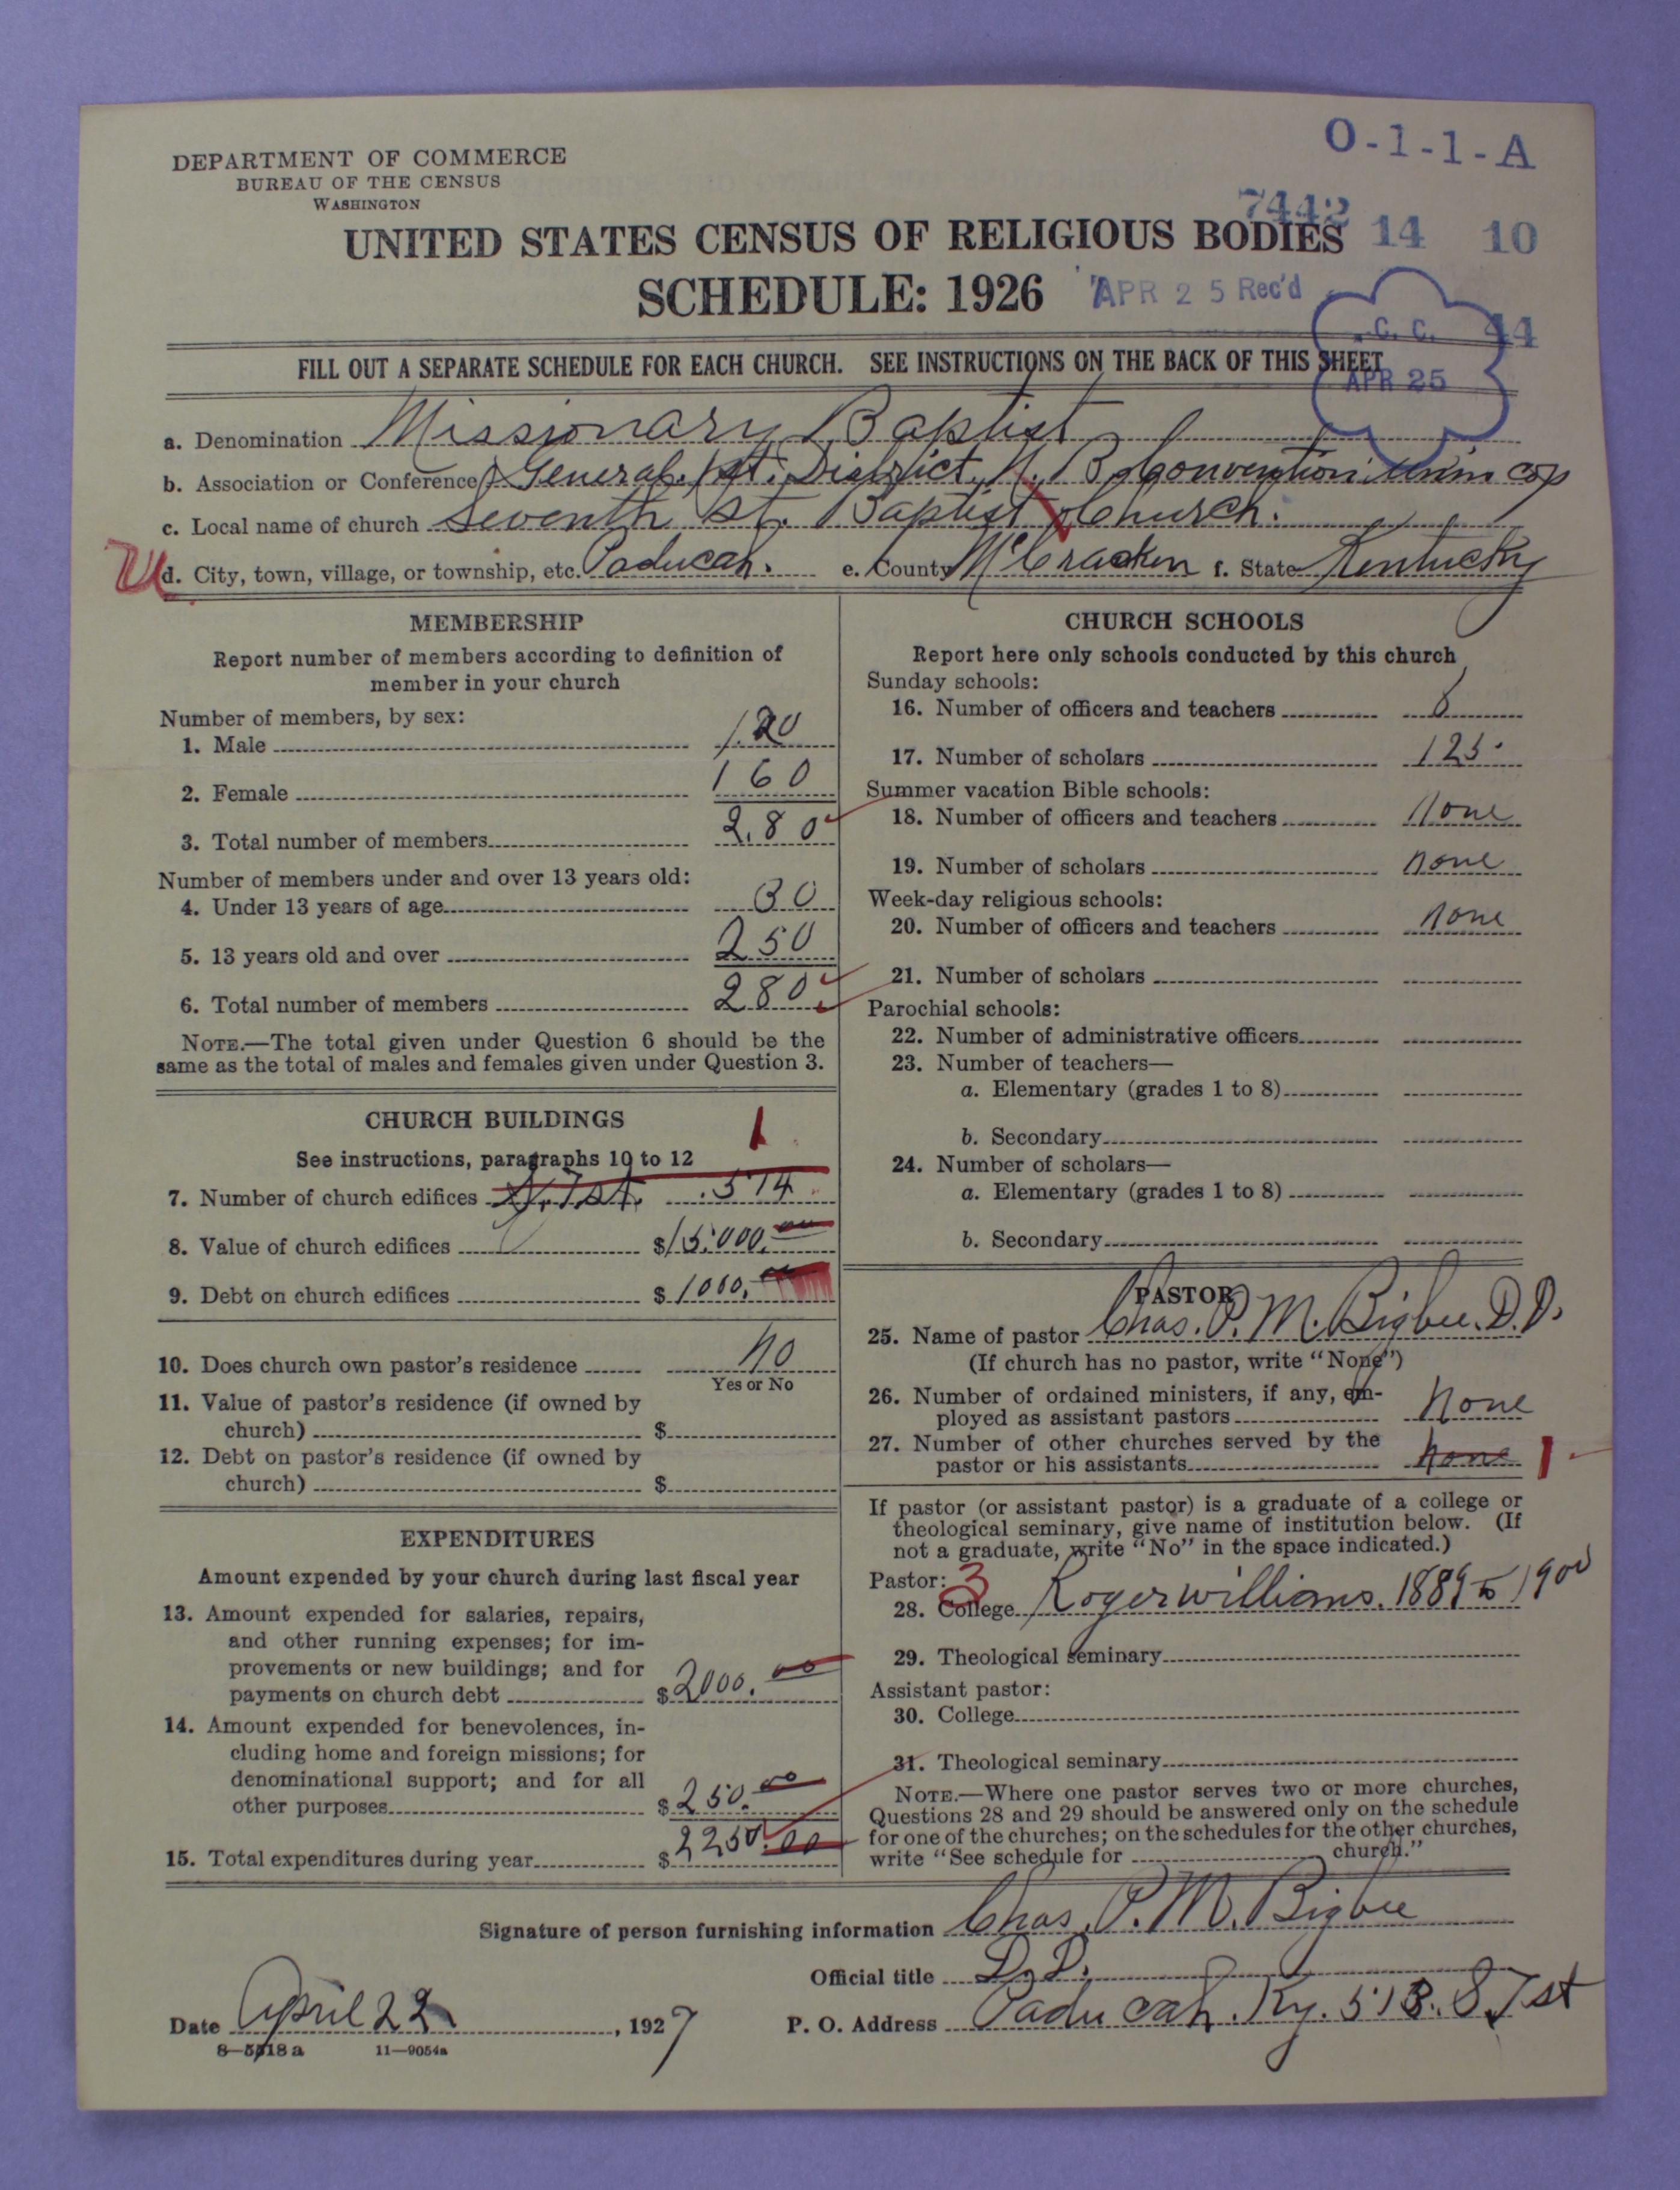 O-1-1-A
DEPARTMENT OF COMMERCE
BUREAU OF THE CENSUS
WASHINGTON
7442 14 10
UNITED STATES CENSUS OF RELIGIOUS BODIES
SCHEDULE: 1926
APR 25 Rec'd
C. C. 44
APR 25
FILL OUT A SEPARATE SCHEDULE FOR EACH CHURCH. SEE INSTRUCTIONS ON THE BACK OF THIS SHEET
a. Denomination Missionary Baptist
b. Association or Conference General 1st. District, N. B. Convention
c. Local name of church Seventh St. Baptist Church.
d. City, town, village, or township, etc. Paducah. e. County McCracken f. State Kentucky
MEMBERSHIP
Report number of members according to definition of
member in your church
Number of members, by sex:
1. Male 120
2. Female 160
3. Total number of members 280
Number of members under and over 13 years old:
4. Under 13 years of age 30
5. 13 years old and over 250
6. Total number of members 280
NOTE.—The total given under Question 6 should be the
same as the total of males and females given under Question 3.
CHURCH BUILDINGS 1
See instructions, paragraphs 10 to 12
7. Number of church edifices S. 7 st. 514
8. Value of church edifices $15.000.00
9. Debt on church edifices $1000.00
10. Does church own pastor's residence No
Yes or No
11. Value of pastor's residence (if owned by
church) $
12. Debt on pastor's residence (if owned by
church) $
EXPENDITURES
Amount expended by your church during last fiscal year
13. Amount expended for salaries, repairs,
and other running expenses; for im-
provements or new buildings; and for
payments on church debt $2000.00
14. Amount expended for benevolences, in-
cluding home and foreign missions; for
denominational support; and for all
other purposes $250.00
15. Total expenditures during year $2250.00
CHURCH SCHOOLS
Report here only schools conducted by this church
Sunday schools:
16. Number of officers and teachers
17. Number of scholars 125
Summer vacation Bible schools:
18. Number of officers and teachers None
19. Number of scholars None
Week-day religious schools:
20. Number of officers and teachers None
21. Number of scholars
Parochial schools:
22. Number of administrative officers
23. Number of teachers—
a. Elementary (grades 1 to 8)
b. Secondary
24. Number of scholars—
a. Elementary (grades 1 to 8)
b. Secondary
PASTOR
25. Name of pastor Chas. P. M. Bigbee. D.D.
(If church has no pastor, write "None")
26. Number of ordained ministers, if any, em-
ployed as assistant pastors None
27. Number of other churches served by the
pastor or his assistants None 1
If pastor (or assistant pastor) is a graduate of a college or
theological seminary, give name of institution below. (If
not a graduate, write "No" in the space indicated.)
Pastor: 3
28. College Roger williams. 1889 to 1900
29. Theological seminary
Assistant pastor:
30. College
31. Theological seminary
NOTE.—Where one pastor serves two or more churches,
Questions 28 and 29 should be answered only on the schedule
for one of the churches; on the schedules for the other churches,
write "See schedule for church."
Signature of person furnishing information Chas. P. M. Bigbee
Official title D.D.
Date April 22, 1927 P. O. Address Paducah. Ky. 513. S. 7 st
8—5518a 11—9054a